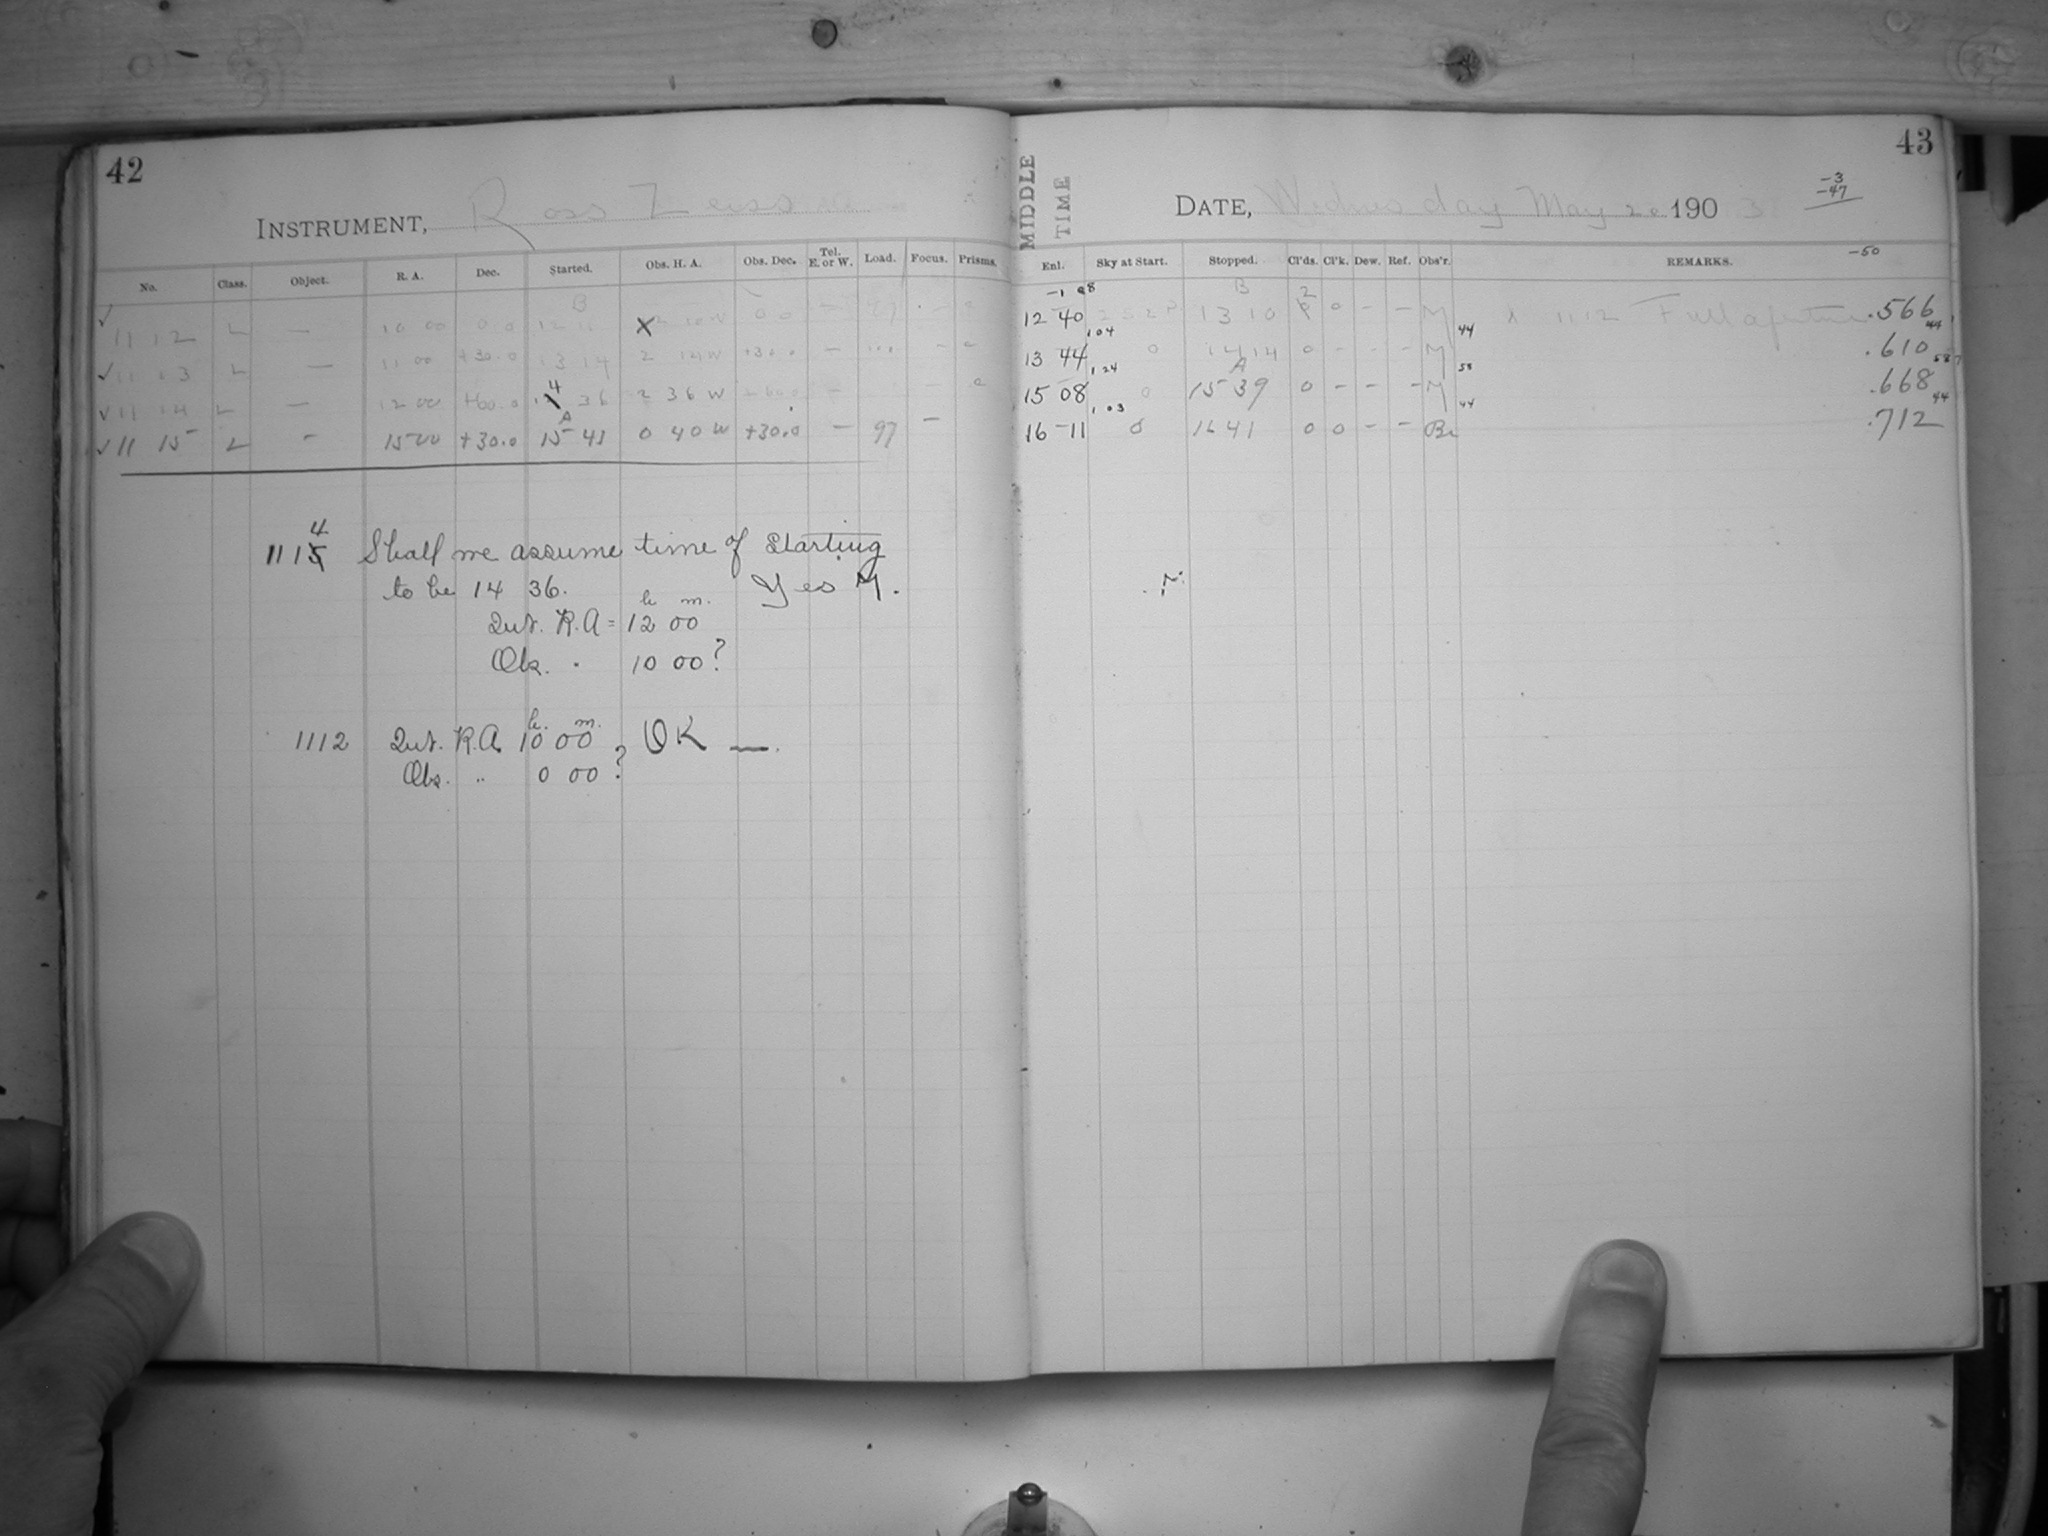 42
INSTRUMENT, Ross Zeiss
No. Class. Object. R. A. Dec. Started. Obs. H. A. Obs. Dec. Tel. E. or W. Load. Focus. Prisms.
B
✓ 11 12 L — 10 00 0.0 12 X 2 10 W 0 0 — 97 · — c
✓ 11 13 L — 11 00 +30.0 13 14 2 14 W +30.0 — — c
4
✓ 11 14 L — 12 00 +60.0 36 2 36 W +60.0 — — c
A
✓ 11 15 L — 15 00 +30.0 15 41 0 40 W +30.0 — 97 —
4
1115 Shall we assume time of starting
to be 14 36. Yes M.
h m.
Qut. R.A = 12 00
Obs. · 10 00?
h. m.
1112 Qut. R.A. 10 00 ? OK —.
Obs. " 0 00
43
MIDDLE TIME
DATE, Wednesday May 20 1903
-3
-47
-50
Enl. Sky at Start. Stopped. Cl'ds. Cl'k. Dew. Ref. Obs'r. REMARKS.
B 2
12 40 13 10 0 — — M 1112 Full aperture .566
104 44 44
13 44 0 14 14 0 - - - M .610
124 A 58 58
15 08 0 15 39 0 - - - M .668
103 44 44
16 11 0 16 41 0 0 - - Br .712